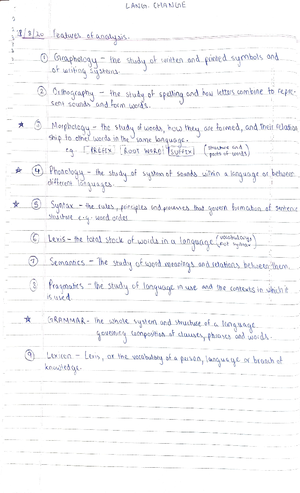 LANG. CHANGE
18/9/20 Features of analysis.
① Graphology - the study of written and printed symbols and
of writing systems.
② Orthography - the study of spelling and how letters combine to repre-
sent sounds and form words.
★ ③ Morphology - the study of words, how they are formed, and their relation
ship to other words in the same language.
eg. [PREFIX] [ROOT WORD] [SUFFIX] (structure and parts of words)
★ ④ Phonology - the study of system of sounds within a language or between
different languages.
★ ⑤ Syntax - the rules, principles and processes that govern formation of sentence
structure e.g. word order.
⑥ Lexis - the total stock of words in a language (vocabulary, not syntax)
⑦ Semantics - The study of word meanings and relations between them.
⑧ Pragmatics - the study of language in use and the contexts in which it
is used.
★ GRAMMAR - the whole system and structure of a language
governing composition of clauses, phrases and words.
⑨ Lexicon - Lexis, or the vocabulary of a person, language or branch of
knowledge.